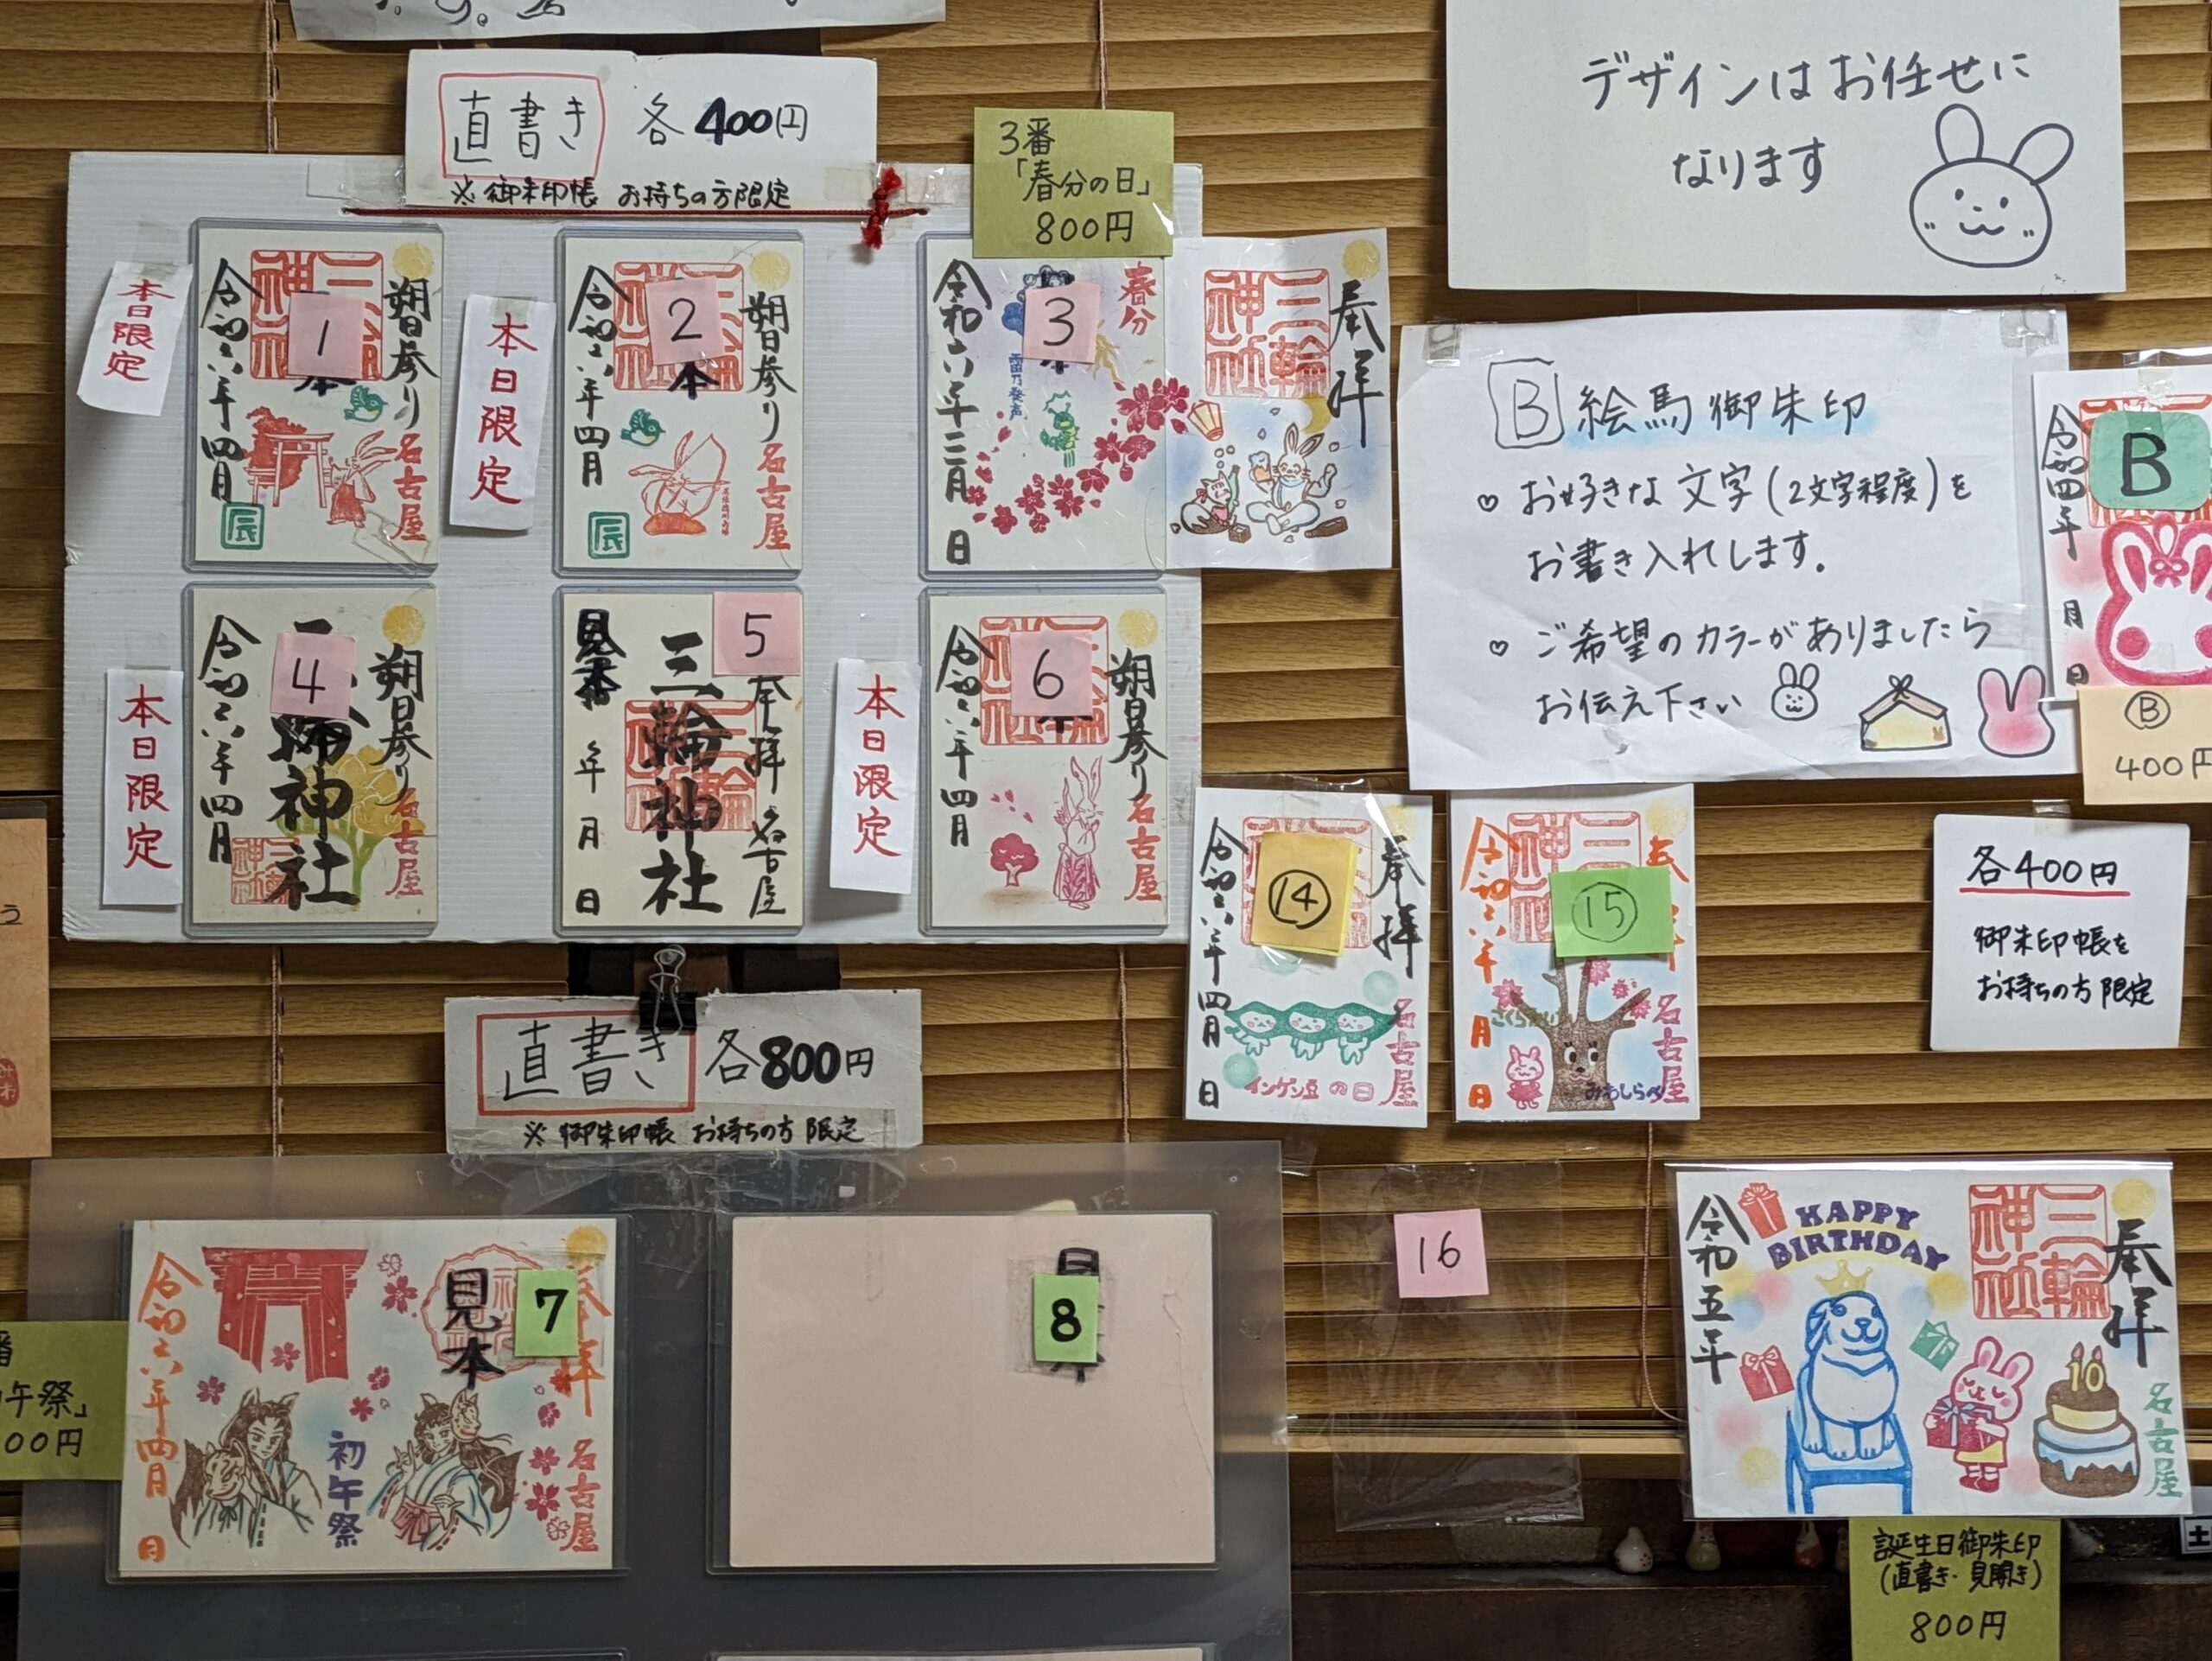 直書き 各400円
※御朱印帳 お持ちの方限定
3番
「春分の日」
800円
デザインはお任せに
なります
本日限定
1
朔日参り
三輪神社
令和六年四月
名古屋
辰
本日限定
2
朔日参り
三輪神社
令和六年四月
名古屋
辰
3
春分
雷乃発声
令和六年三月 日
奉拝
三輪神社
本日限定
4
朔日参り
三輪神社
令和六年四月
名古屋
5
見本
奉拝 名古屋
三輪神社
年 月 日
本日限定
6
朔日参り
三輪神社
令和六年四月
名古屋
B 絵馬御朱印
♡ お好きな文字(2文字程度)を
お書き入れします。
♡ ご希望のカラーがありましたら
お伝え下さい
B
令和四年 月 日
Ⓑ
400円
⑭
奉拝
令和六年四月 日
名古屋
インゲン豆の日
⑮
三輪神社
令和六年 月 日
名古屋
さくらがい
各400円
御朱印帳を
お持ちの方限定
直書き 各800円
※御朱印帳 お持ちの方限定
7
見本
令和六年四月 日
初午祭
名古屋
8
午祭」
00円
16
HAPPY
BIRTHDAY
奉拝
三輪神社
令和五年
10
名古屋
誕生日御朱印
(直書き・見開き)
800円